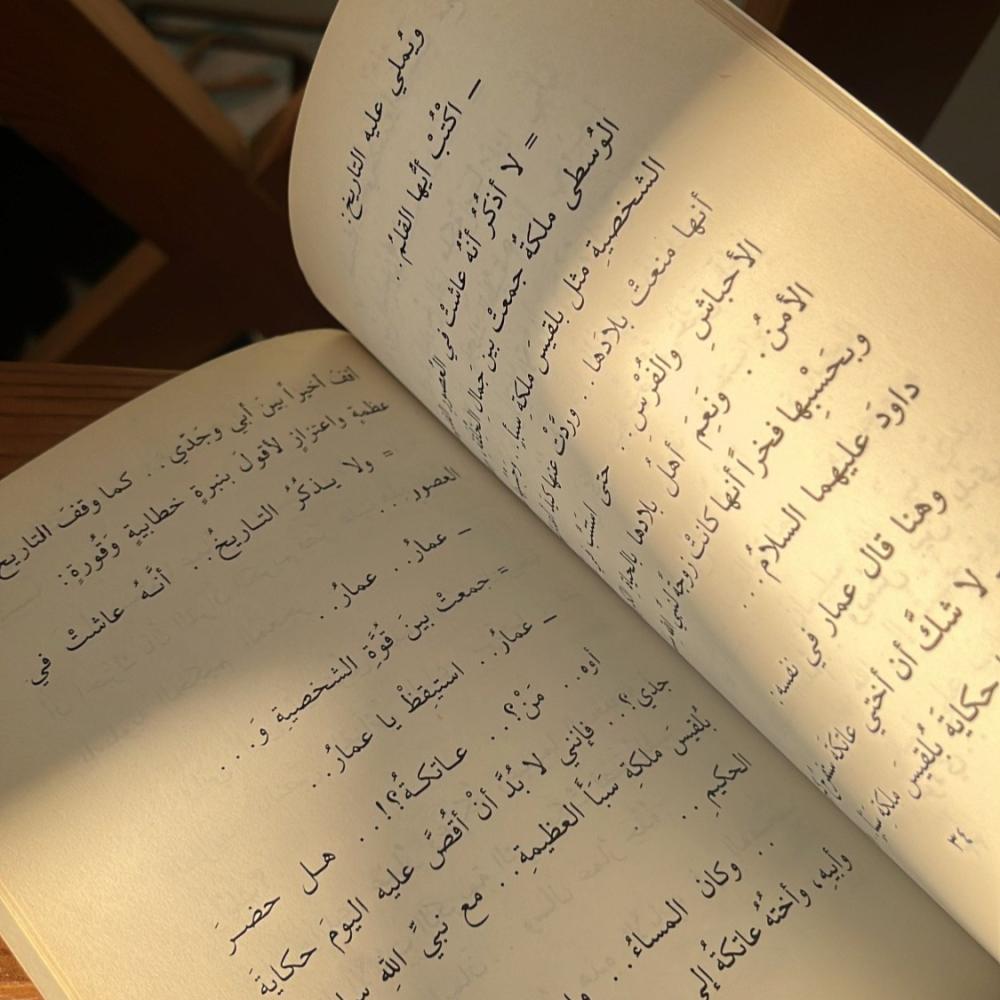 ويُملي عليه التاريخ:
– اكْتُبْ أيُّها القلمُ..
= لا أذكُرُ أنَّهُ عاشتْ في العُصورِ
الوُسطى ملكةٌ جمعتْ بين جَمالِ
الشخصيةِ مثل بلقيسَ ملكةِ سبأ..
أنها منعتْ بلادَها.. وردَّتْ عنها
الأحباشِ والفُرْسِ.. حتى
الأمنُ.. ونَعِيَم أهلُ بلادها
ويحَسْبِها فخراً أنها كانتْ زوجةً
داودَ عليهما السلامُ...
وهنا قال عمار في نفسه:
– لا شكَّ أن أختي عاتكة
حكايةَ بُلقيسَ ملكة
٣٤
أقفُ أخيراً بينَ أبي وجَدّي.. كما وقفَ التاريخ
عظمةٍ واعتزازٍ لأقولَ بنبرةٍ خطابيةٍ وَقُورةٍ:
= ولا يـذكُرُ التـاريخُ.. أنَّـهُ عاشتْ في
العصور...
– عمارُ.. عمارُ..
= جمعتْ بينَ قُوَّةِ الشخصيةِ وَ...
– عمارُ.. استيقظْ يا عمارُ..
أوه.. مَنْ؟.. عـاتكـةُ؟!.. هـل حضرَ
جدي؟.. فإنني لا بُدَّ أنْ أقُصَّ عليه اليومَ حكايةَ
بُلقيسَ ملكةِ سَبَأَ العظيمةِ... مع نبيِّ اللهِ
الحكيمِ..
.. وكان المساءُ..
وأبيهِ، وأختهُ عاتكةُ إلى